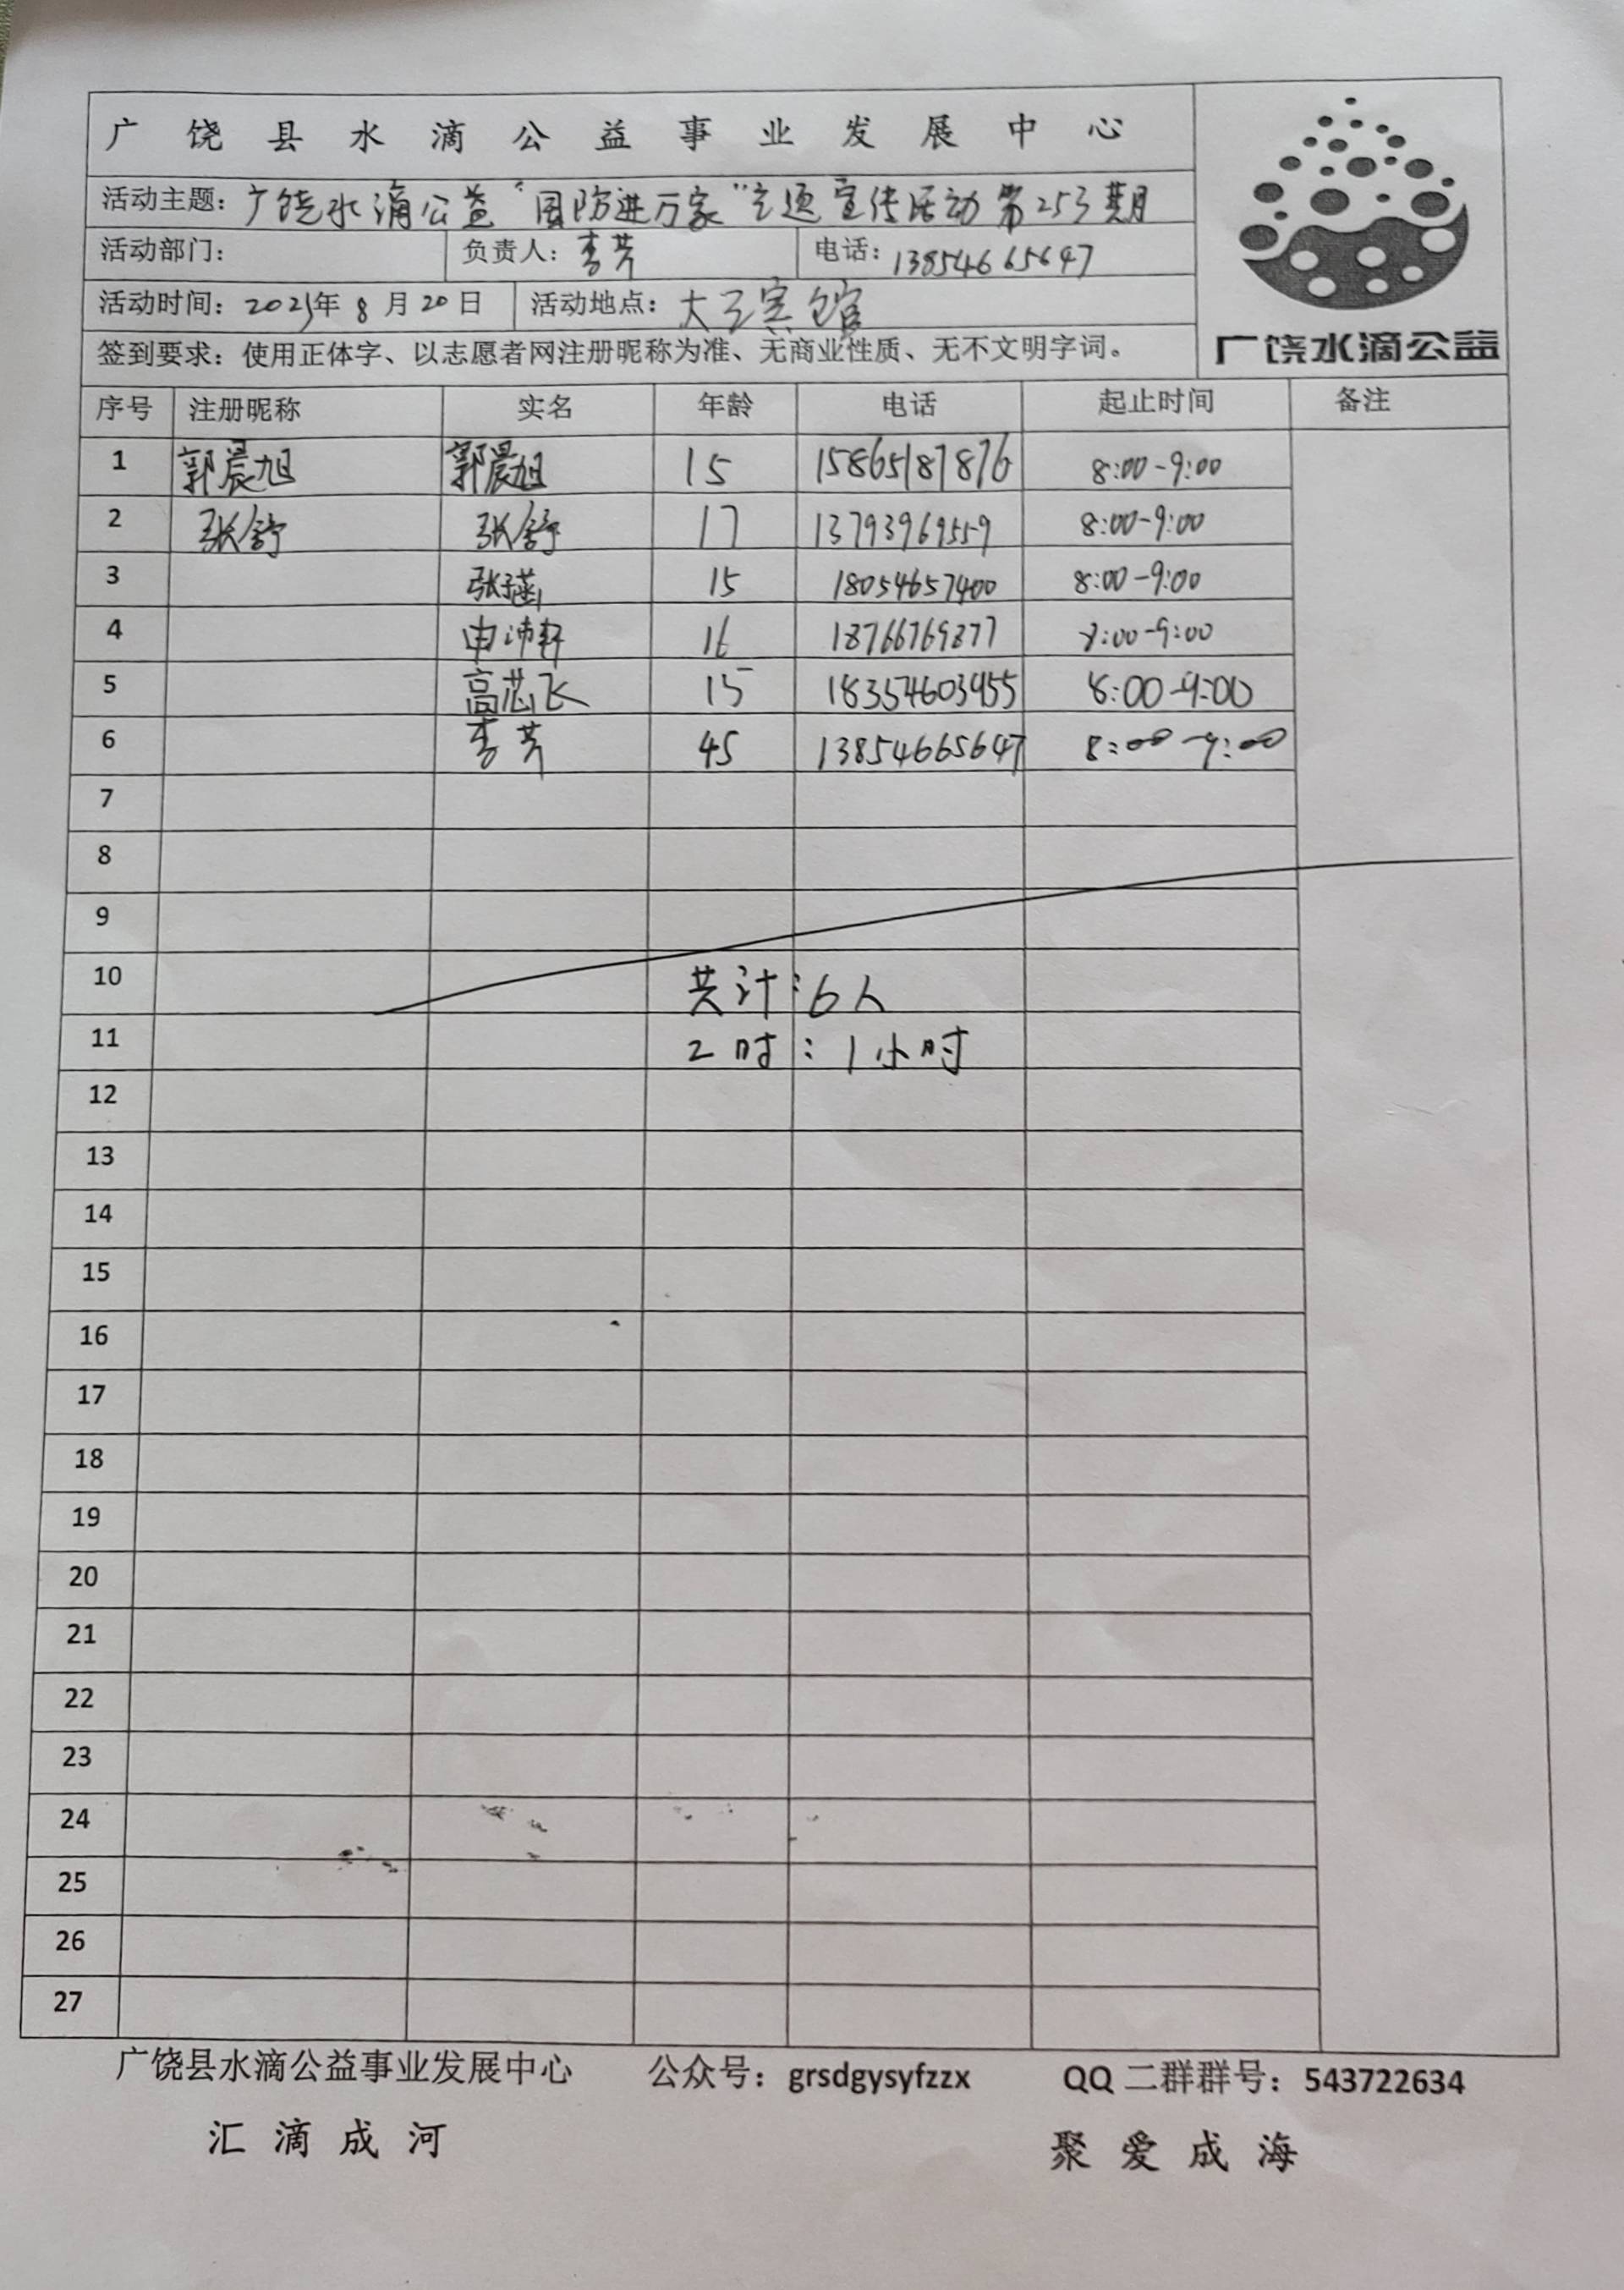 广饶县水滴公益事业发展中心
活动主题：广饶水滴公益“国防进万家”主题宣传活动第253期
活动部门： 负责人：李芳 电话：13854665647
活动时间：2025年8月20日 活动地点：大王宾馆
签到要求：使用正体字、以志愿者网注册昵称为准、无商业性质、无不文明字词。
广饶水滴公益
序号 注册昵称 实名 年龄 电话 起止时间 备注
1 郭晨旭 郭晨旭 15 15865187876 8:00-9:00
2 张舒 张舒 17 13793969559 8:00-9:00
3 张子菡 15 18054657400 8:00-9:00
4 申沛轩 16 18766769277 8:00-9:00
5 高芯飞 15 18354603955 8:00-9:00
6 李芳 45 13854665647 8:00-9:00
7
8
9
10 共计：6人
11 2时：1小时
12
13
14
15
16
17
18
19
20
21
22
23
24
25
26
27
广饶县水滴公益事业发展中心 公众号：grsdgysyfzzx QQ二群群号：543722634
汇滴成河 聚爱成海